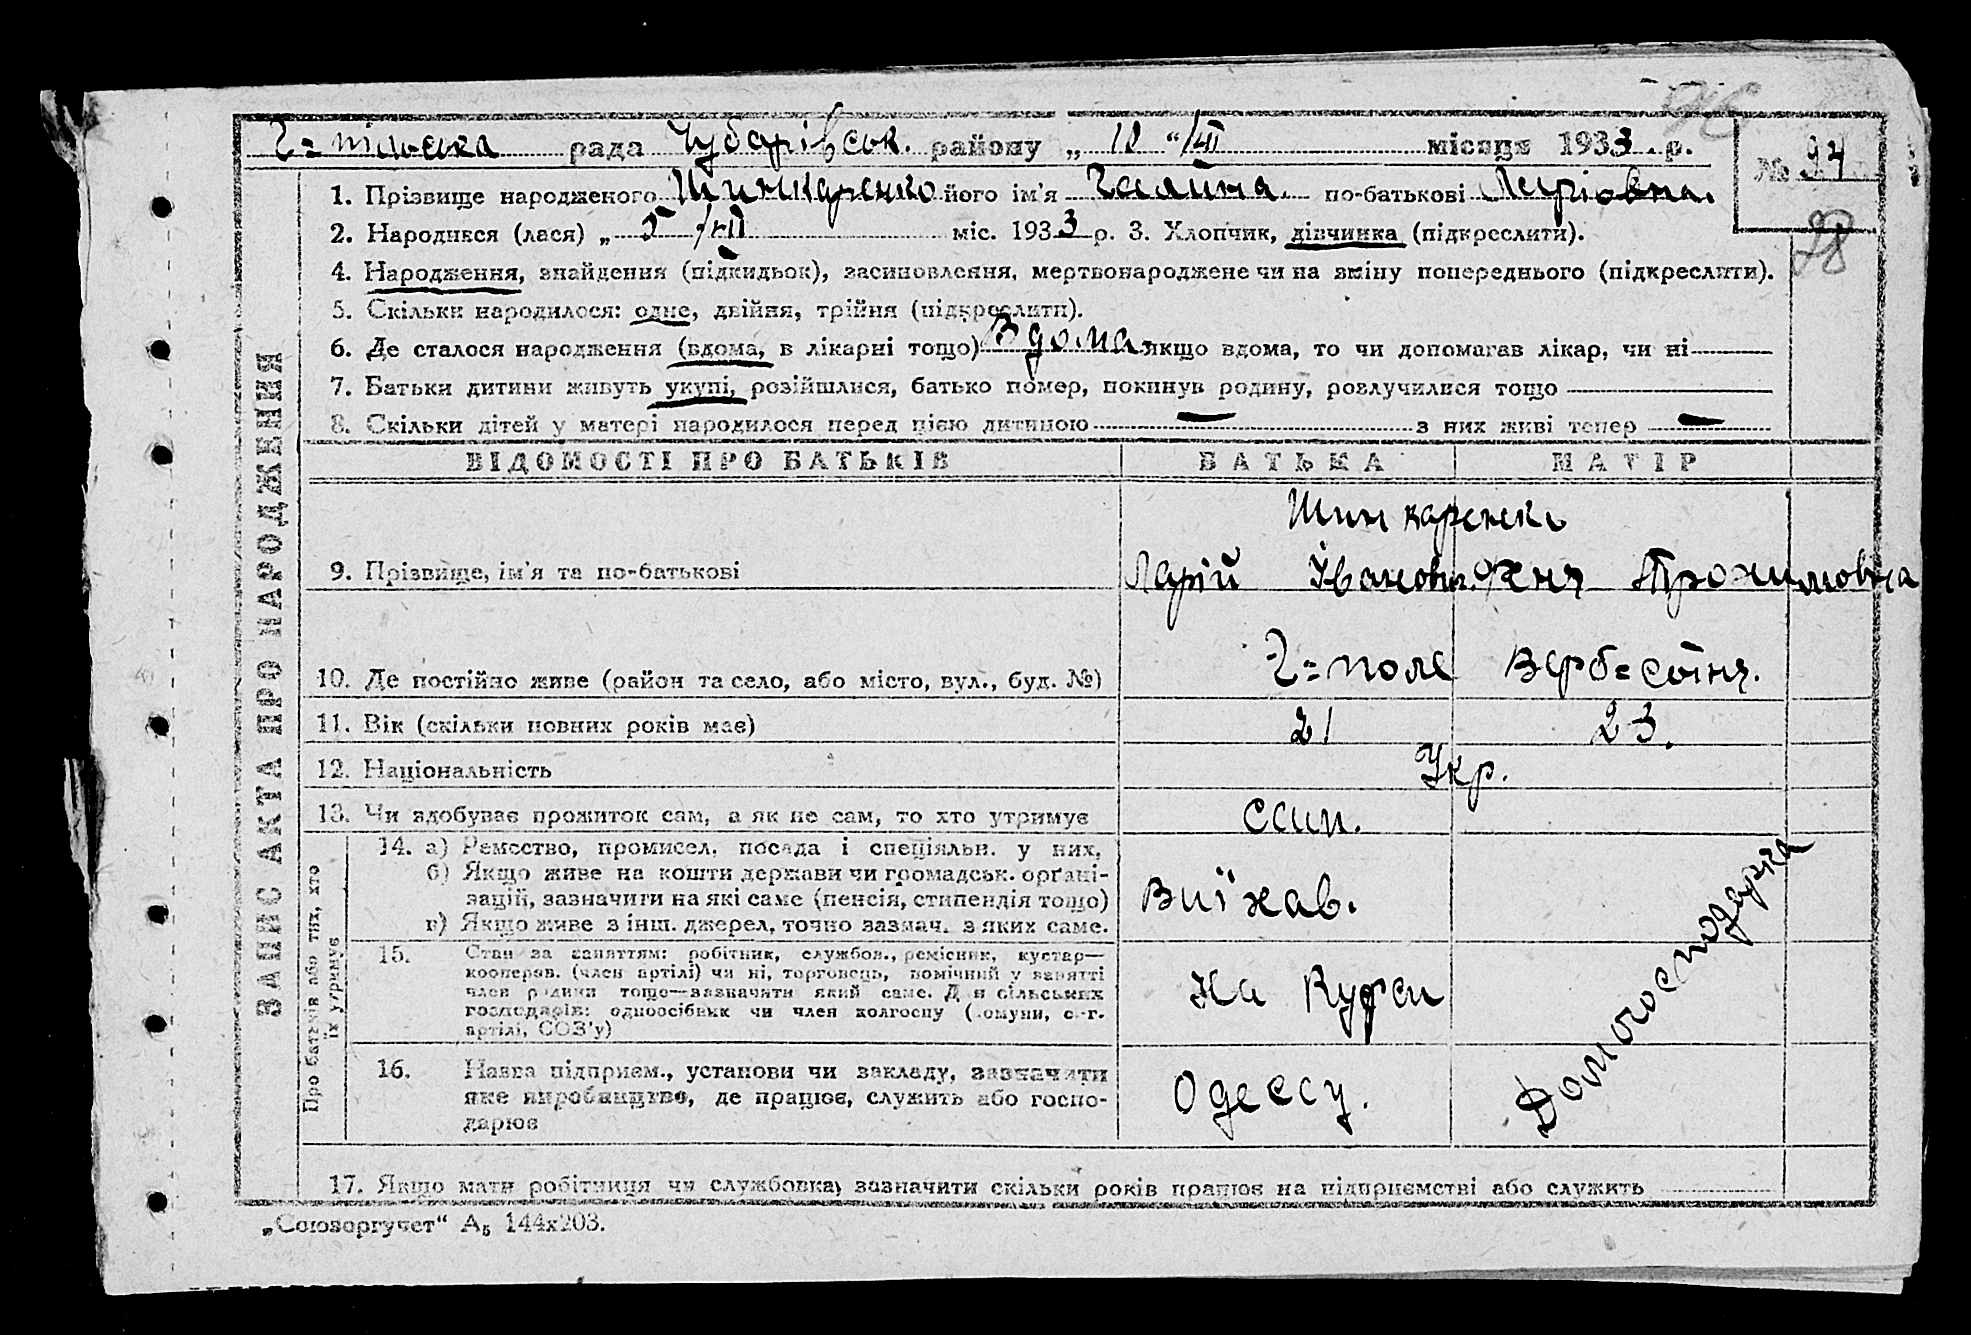 Г=пільська рада Чубарівськ. району „ 10 “ /VII місяця 1933 р.
№ 94
98
1. Прізвище народженого Шинкаренко його ім'я Галина по-батькові Ларіовна.
2. Народився (лася) „ 5 /VII міс. 1933 р. 3. Хлопчик, дівчинка (підкреслити).
4. Народження, знайдення (підкидьок), засиновлення, мертвонароджене чи на зміну попереднього (підкреслити).
5. Скільки народилося: одне, двійня, трійня (підкреслити).
6. Де сталося народження (вдома, в лікарні тощо) Вдома. якщо вдома, то чи допомагав лікар, чи ні
7. Батьки дитини живуть укупі, розійшлися, батько помер, покинув родину, розлучилися тощо
8. Скільки дітей у матері народилося перед цією дитиною — з них живі тепер —
ЗАПИС АКТА ПРО НАРОДЖЕННЯ
ВІДОМОСТІ ПРО БАТЬКІВ БАТЬКА МАТІР
Шинкаренки
9. Прізвище, ім'я та по-батькові Ларій Іванович Трохимовна
10. Де постійно живе (район та село, або місто, вул., буд. №) Г=поле Верб=сотня.
11. Вік (скільки повних років має) 21 23.
12. Національність Укр.
13. Чи здобуває прожиток сам, а як не сам, то хто утримує сам.
Про батьків або тих, хто їх утримує
14. а) Ремество, промисел, посада і спеціяльн. у них,
б) Якщо живе на кошти держави чи громадськ. органі-
зацій, зазначити на які саме (пенсія, стипендія тощо) Виїхав.
в) Якщо живе з інш. джерел, точно зазнач. з яких саме.
15. Стан за заняттям: робітник, службов., ремісник, кустар—
кооперов. (член артілі) чи ні, торговець, помічний у занятті
член родини тощо—зазначити який саме. Для сільських На Курси
господарів: одноосібник чи член колгоспу (комуни, с.-г.
артілі, СОЗ'у)
16. Назва підприєм., установи чи закладу, зазначити
яке виробництво, де працює, служить або госпо- Одессу.
дарює
Домогосподарка
17. Якщо мати робітниця чи службовка, зазначити скільки років працює на підприємстві або служить
„Союзоргучет“ А5 144х203.